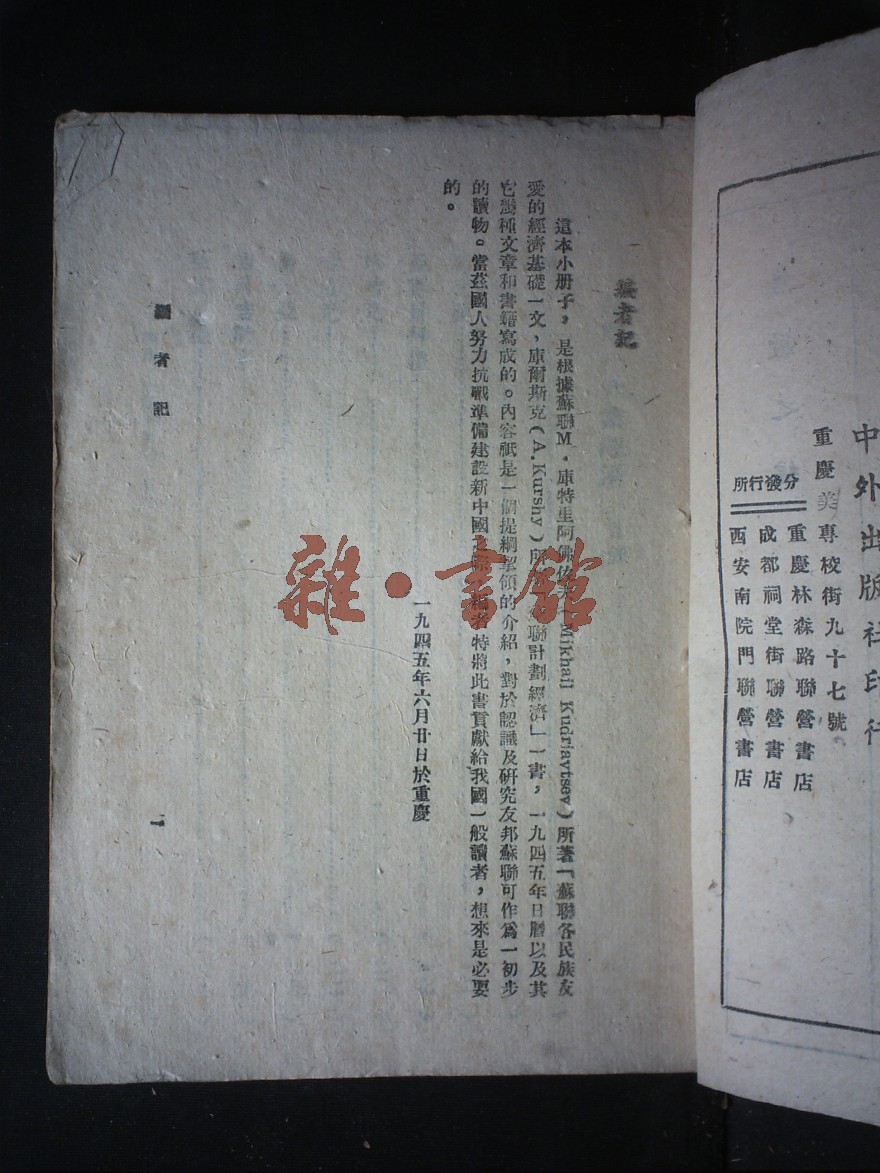 中外出版社印行
重慶美專校街九十七號
分發行所
重慶林森路聯營書店
成都祠堂街聯營書店
西安南院門聯營書店
編者記
這本小册子，是根據蘇聯M．庫特里阿佛佐夫（Mikhail Kudriavtsev）所著「蘇聯各民族友
愛的經濟基礎一文，庫爾斯克（A. Kurshy）所 聯計劃經濟」一書，一九四五年日曆以及其
它幾種文章和書籍寫成的。內容祇是一個提綱挈領的介紹，對於認識及研究友邦蘇聯可作爲一初步
的讀物。當茲國人努力抗戰準備建設新中國之際，編者特將此書貢獻給我國一般讀者，想來是必要
的。
一九四五年六月廿日於重慶
編者記
雜·書館